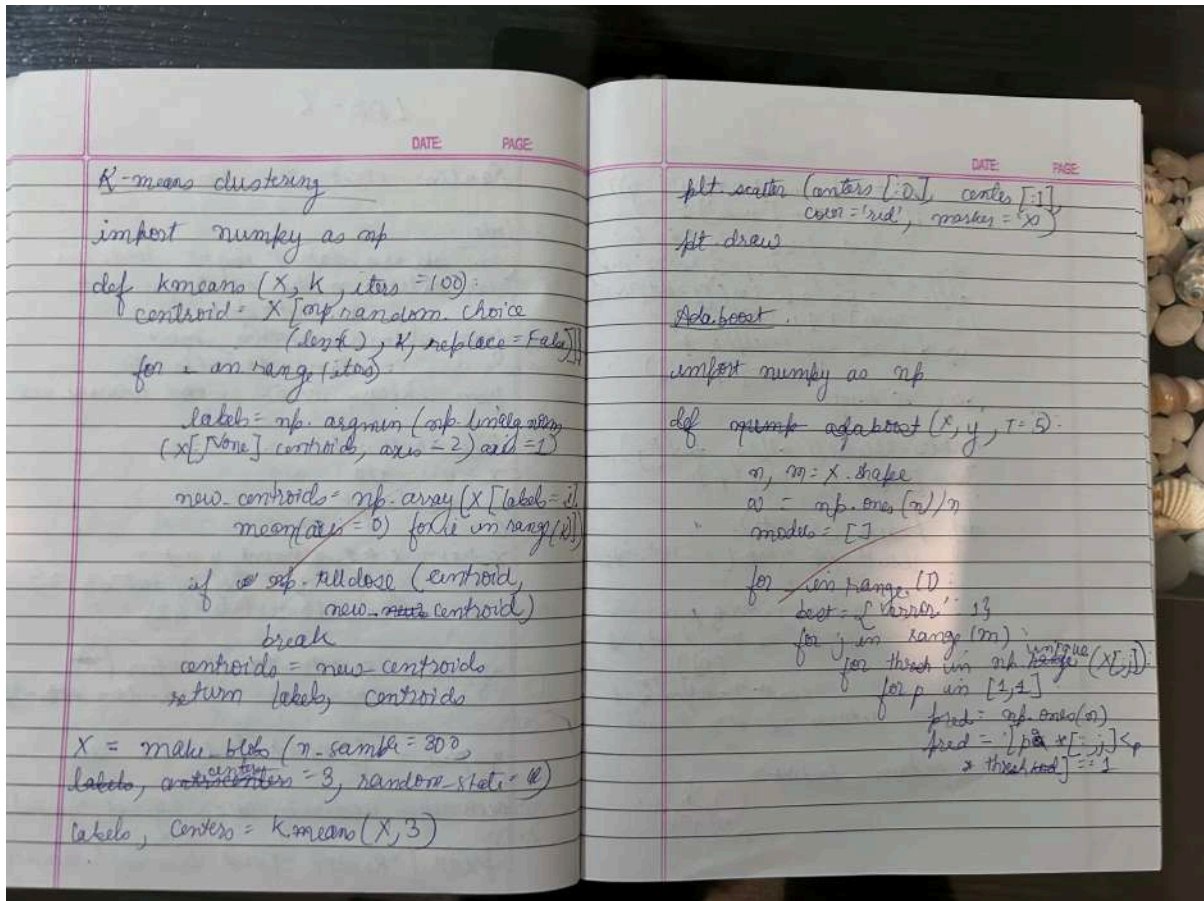 DATE: PAGE:
K-means clustering
import numpy as np
def kmeans (X, K, iters = 100):
centroid = X [np.random. choice
(len(x), K, replace = False)]
for i in range (iters):
labels = np. argmin (np. linalg norm
(x[:,None] centroids, axis = 2) axis = 1)
new_centroids = np. array (X [labels = i].
mean(axis = 0) for i in range(k)])
if np. allclose (centroid,
new_ centroid)
break
centroids = new_centroids
return labels, centroids
X = make_blobs (n_sample = 300,
centers = 3, random_state =
labels, centers = k.means (X, 3)
DATE: PAGE:
plt scatter (centers [:0], center [:1],
color = 'red', marker = 'x')
plt. draw
Adaboost.
import numpy as np
def adaboost (X, y, T = 5):
n, m = X. shape
w = np. ones (n)/n
models = []
for in range (T)
best = { 'error' : 1}
for j in range (m) :
for thresh in np. unique (X[:,j]):
for p in [1,1]
pred = np. ones(n)
pred = [p * [:,j] < p
* thresh] == 1